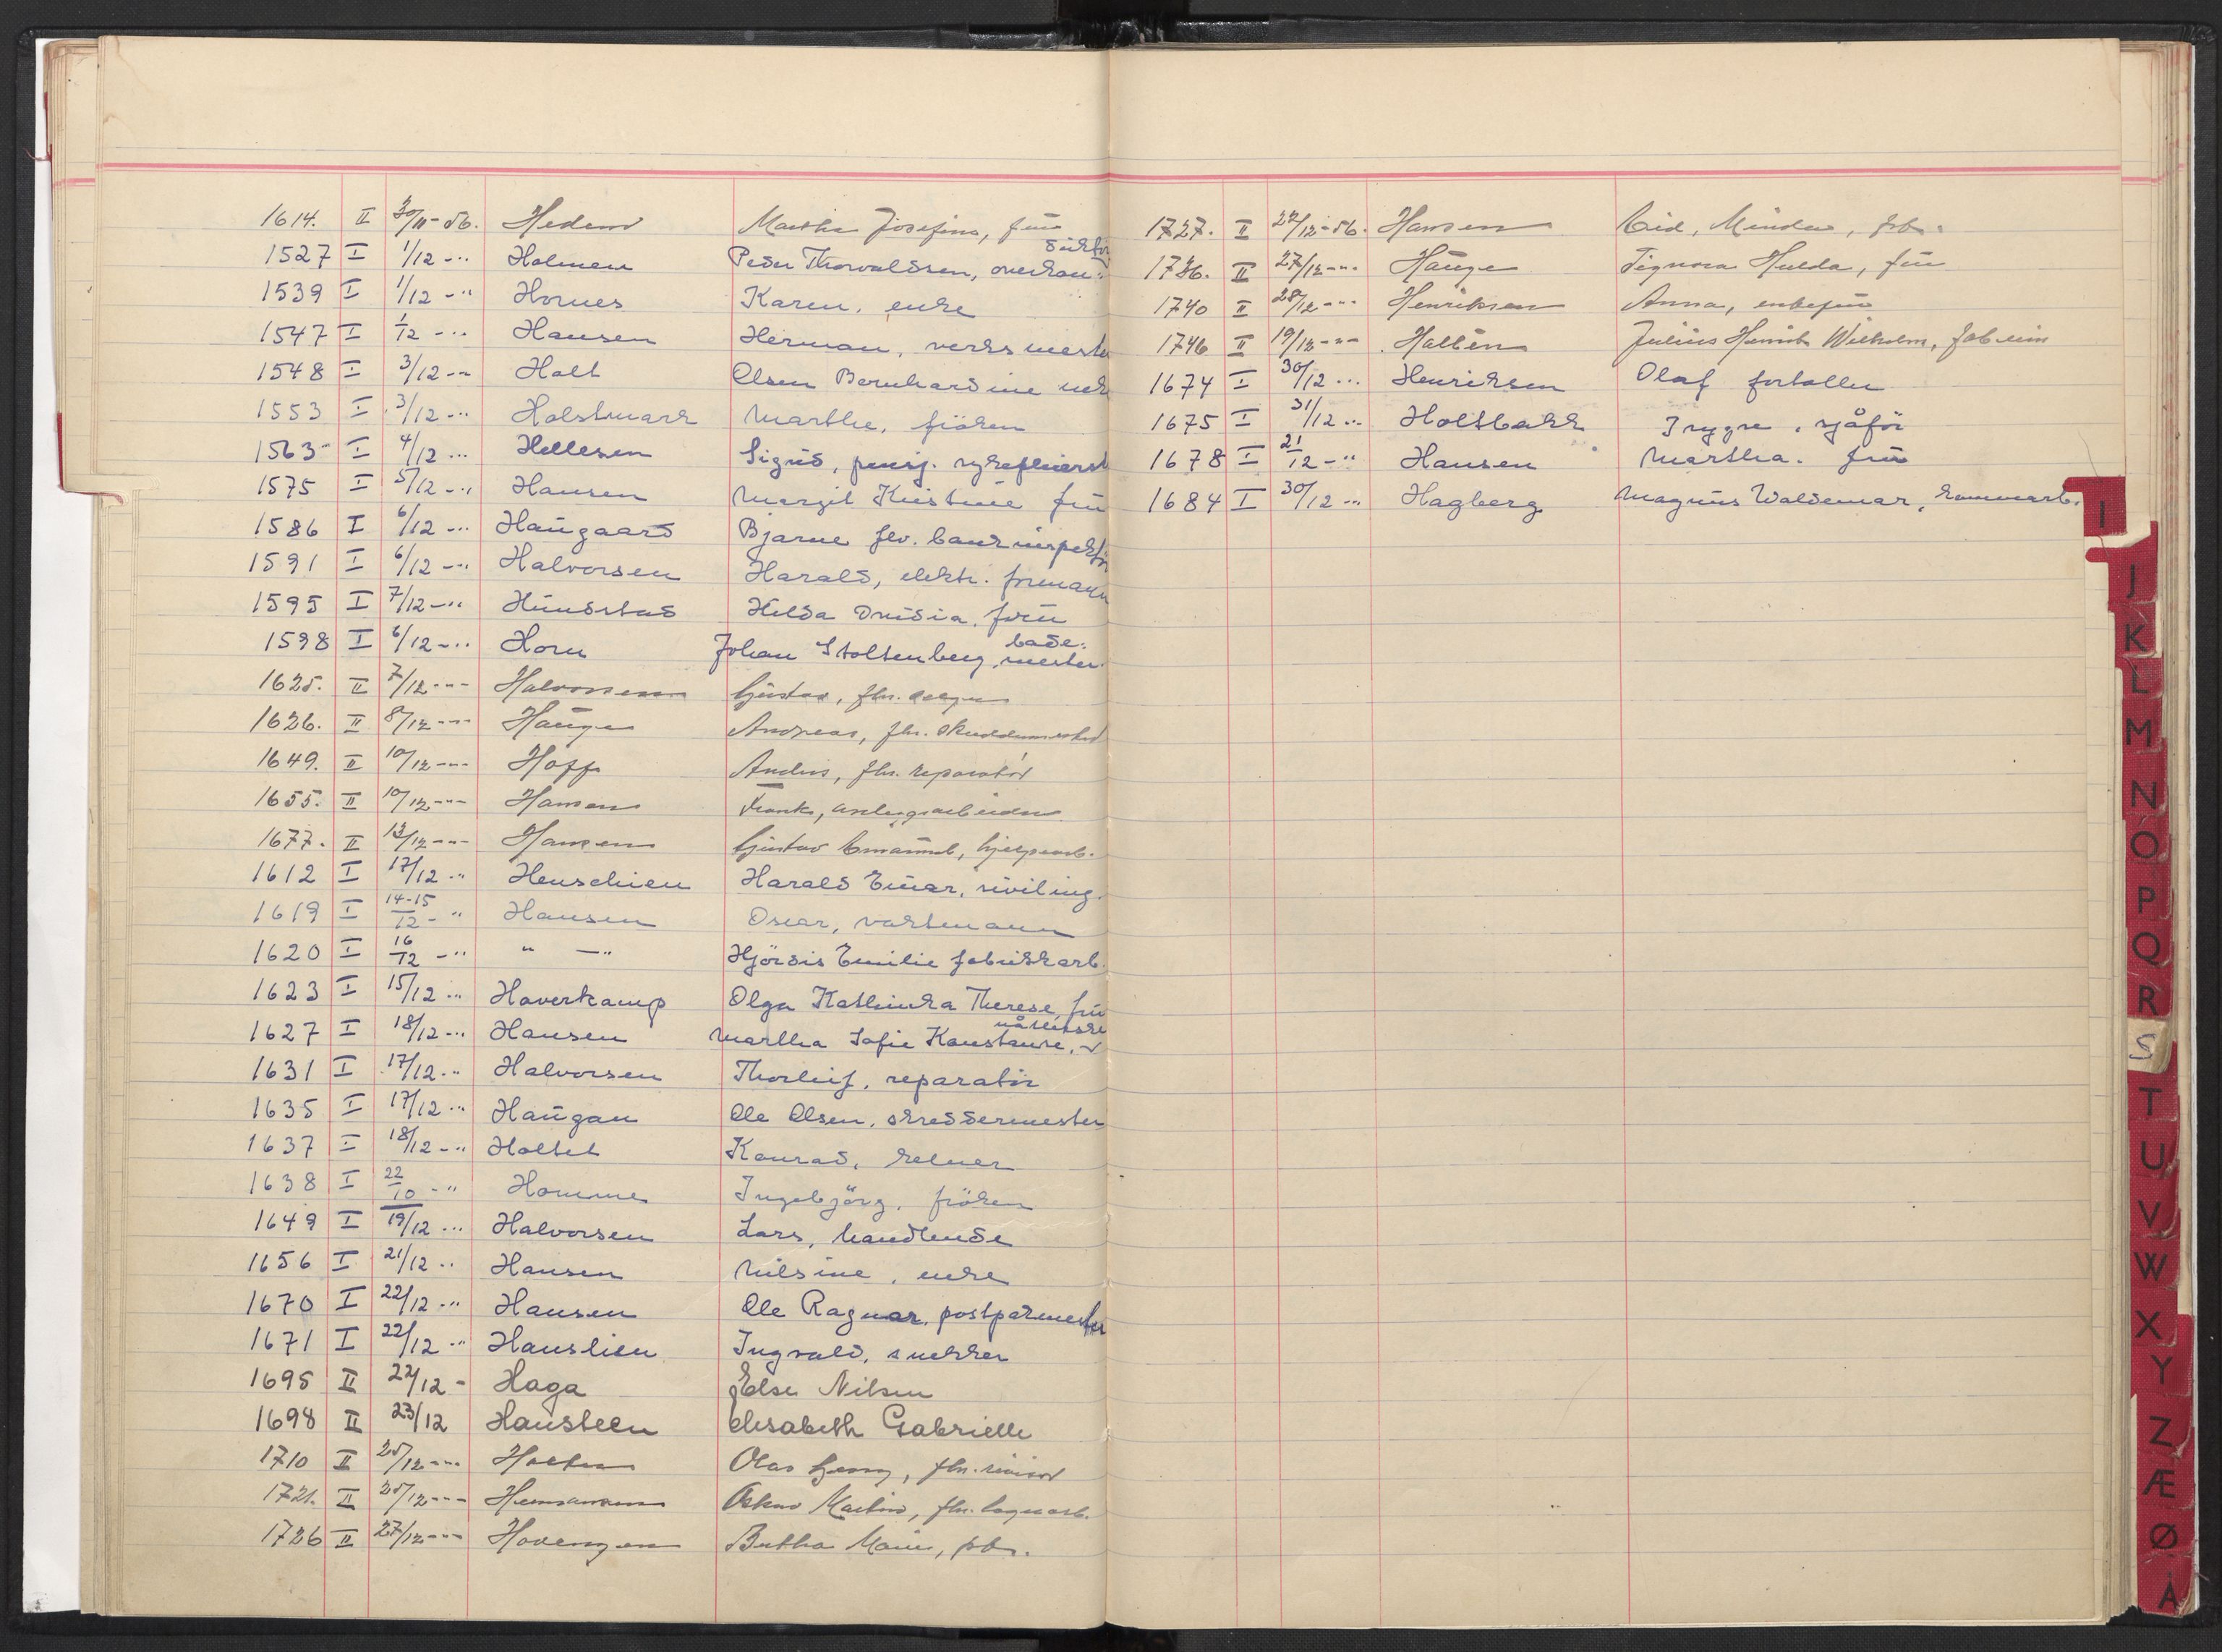 1614. II 30/11-56. Hedem Martha Josefine, frü
1527 I 1/12 -" Holmen Peder Thorvaldsen, overkon- düktør
1539 I 1/12 -" Hornes Karen, enke
1547 I 1/12 -" Hansen Herman, verksmester
1548 I 3/12 -" Holt Olsen Bernhardine enke
1553 I 3/12 -" Holstmark Marthe, fröken
1563 I 4/12 -" Hellesen Sigrid, pensj. sykepleierske
1575 I 5/12 -" Hansen Margit Kristine frü
1586 I 6/12 -" Haugaard Bjarne flv. bankinspektør
1591 I 6/12 -" Halvorsen Harald, elektr. formann
1595 I 7/12 -" Hundstad Hilda Drusia, frü
1598 I 6/12 -" Horn Johan Stoltenberg, bade- mester.
1625. II 7/12 -"- Halvorsen Güstav, fhv.
1626. II 8/12 -"- Haüge Andreas, fhv. skreddermester
1649. II 10/12 -"- Hoff Anders, fhv. reparatör
1655. II 10/12 -"- Hansen Frank, anleggsarbeider
1677. II 13/12 -"- Hansen Güstav Emanüel, hjelpearb.
1612 I 17/12 -" Henschien Harald Einar, siviling.
1619 I 14-15/12 -" Hansen Oscar, vaktmann
1620 I 16/12 -" " -" Hjördis Emilie fabrikkarb.
1623 I 15/12 -" Haverkamp Olga Kathinka Therese, frü
1627 I 18/12 -" Hansen Martha Sofie Konstanse, nåtlerske
1631 I 17/12 -" Halvorsen Thorleif, reparatör
1635 I 17/12 -" Haugan Ole Olsen, skreddermester
1637 I 18/12 -" Holtet Konrad, kelner
1638 I 22/10 -" Homme Ingebjörg, fröken
1649 I 19/12 -" Halvorsen Lars, handlende
1656 I 21/12 -" Hansen Nilsine, enke
1670 I 22/12 -" Hansen Ole Ragnar, postpakmester
1671 I 22/12 -" Hauslien Ingvald, snekker
1695 II 22/12 - Haga Else Nilsen
1698 II 23/12 Hansteen Elisabeth Gabrielle
1710 II 25/12 -"- Holten Olav Georg, fhv. revisor
1721. II 25/12 -"- Hermansen Oskar Martin, fhv. lagerarb.
1726 II 27/12 -"- Hovengen Bertha Marie, pbr.
1727. II 22/12-56. Hansen Minda, pbr.
1736. II 27/12 -"- Haüge Signora Hulda, frü
1740 II 28/12 -"- Henriksen Anna, enkefrü
1746 II 19/12 -"- Hallèn Julius Henrik Wilhelm,
1674 I 30/12 -" Henriksen Olaf forteller
1675 I 31/12 -" Holtbakk Trygve, sjåför
1678 I 21/12 -" Hansen Martha, frü
1684 I 30/12 -" Hagberg Magnus Waldemar, kommarb.
I
J
K
L
M
N
O
P
Q
R
S
T
U
V
W
X
Y
Z
Æ
Ø
Å